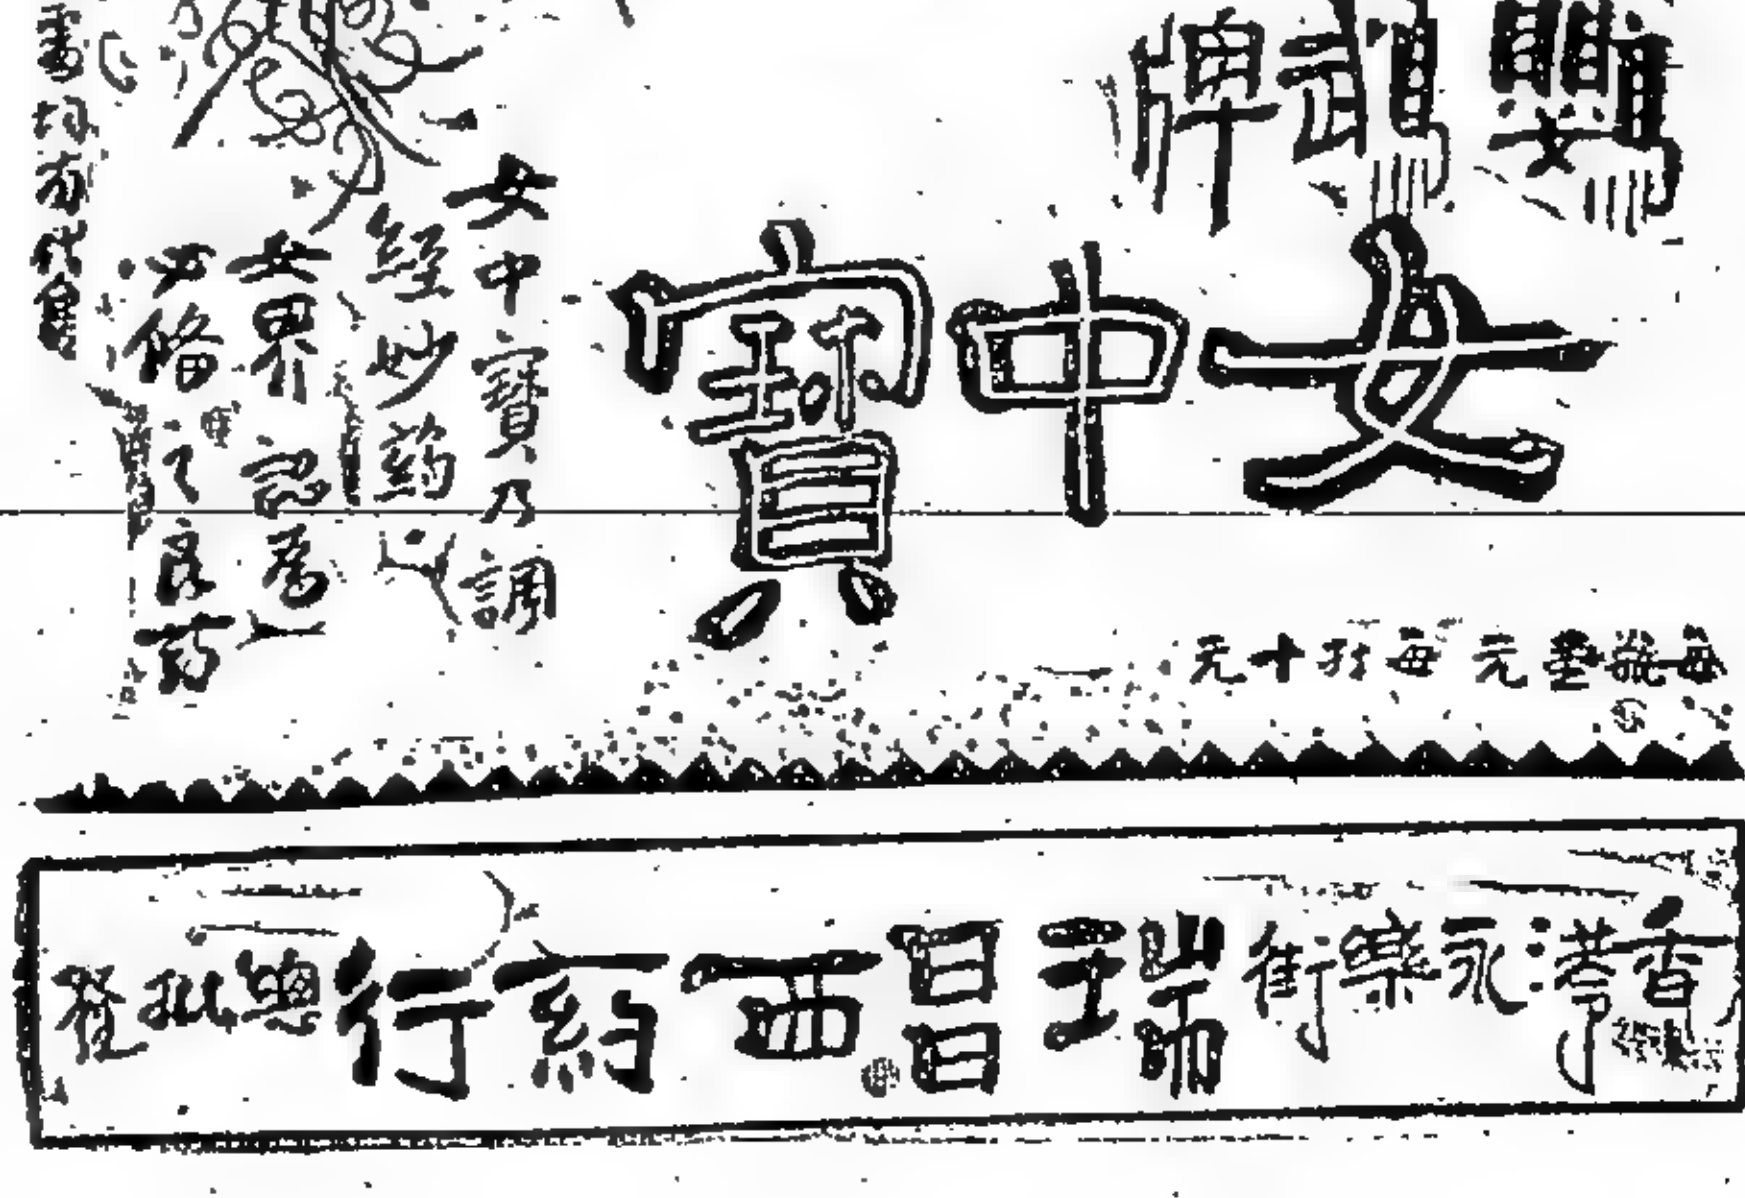 鸚鵡牌
女中寶
女中寶乃調
經妙葯
女界認為
必備之良葯
各埠均有代售
每瓶壹元 每打十元
香港永樂街瑞昌西葯行總批發